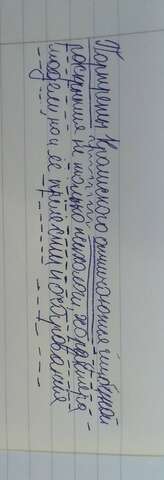 Портреты Крамского отличаются глубиной
раскрытия не только психологии характера
модели, но и её профессии и образования